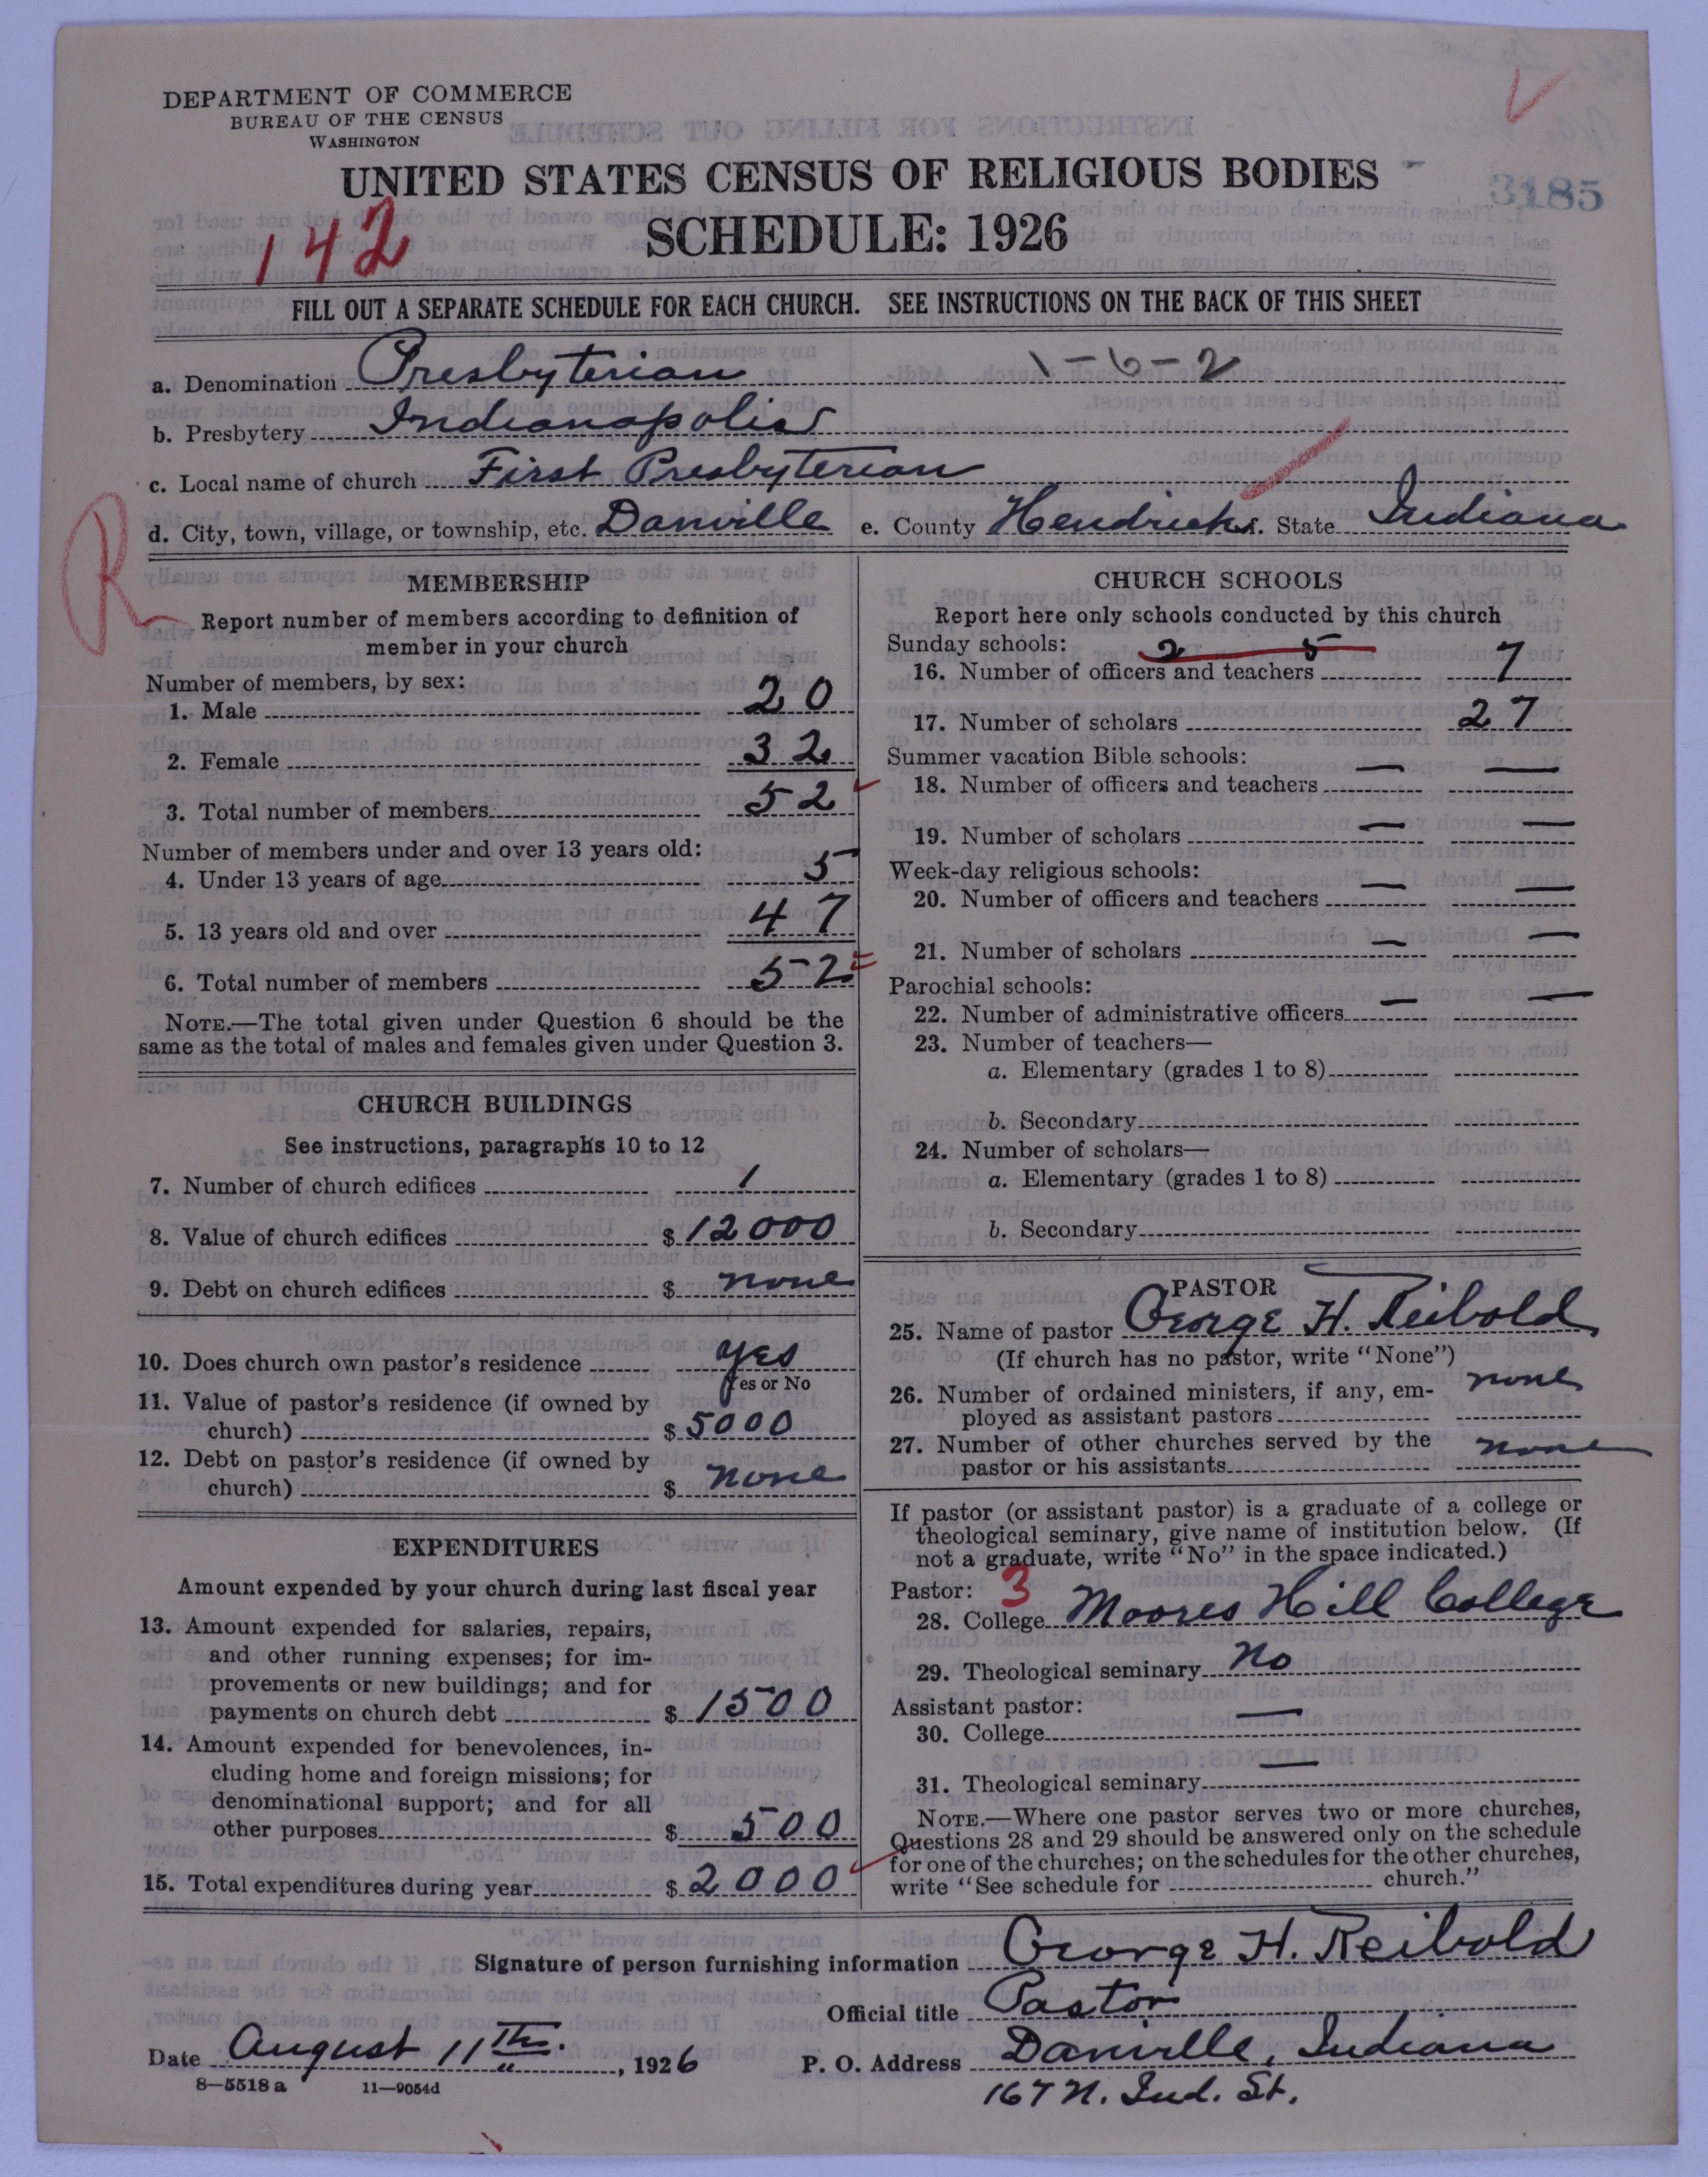 DEPARTMENT OF COMMERCE
BUREAU OF THE CENSUS
WASHINGTON
UNITED STATES CENSUS OF RELIGIOUS BODIES
3185
142
SCHEDULE: 1926
FILL OUT A SEPARATE SCHEDULE FOR EACH CHURCH. SEE INSTRUCTIONS ON THE BACK OF THIS SHEET
a. Denomination Presbyterian 1-6-2
b. Presbytery Indianapolis
c. Local name of church First Presbyterian
d. City, town, village, or township, etc. Danville e. County Hendricks f. State Indiana
R
MEMBERSHIP
Report number of members according to definition of
member in your church
Number of members, by sex:
1. Male 20
2. Female 32
3. Total number of members 52
Number of members under and over 13 years old:
4. Under 13 years of age 5
5. 13 years old and over 47
6. Total number of members 52
NOTE.—The total given under Question 6 should be the
same as the total of males and females given under Question 3.
CHURCH BUILDINGS
See instructions, paragraphs 10 to 12
7. Number of church edifices 1
8. Value of church edifices $ 12000
9. Debt on church edifices $ none
10. Does church own pastor's residence yes
Yes or No
11. Value of pastor's residence (if owned by
church) $ 5000
12. Debt on pastor's residence (if owned by
church) $ none
EXPENDITURES
Amount expended by your church during last fiscal year
13. Amount expended for salaries, repairs,
and other running expenses; for im-
provements or new buildings; and for
payments on church debt $ 1500
14. Amount expended for benevolences, in-
cluding home and foreign missions; for
denominational support; and for all
other purposes $ 500
15. Total expenditures during year $ 2000
CHURCH SCHOOLS
Report here only schools conducted by this church
Sunday schools: 2 5
16. Number of officers and teachers 7
17. Number of scholars 27
Summer vacation Bible schools:
18. Number of officers and teachers — —
19. Number of scholars — —
Week-day religious schools:
20. Number of officers and teachers — —
21. Number of scholars — —
Parochial schools:
22. Number of administrative officers — —
23. Number of teachers—
a. Elementary (grades 1 to 8)
b. Secondary
24. Number of scholars—
a. Elementary (grades 1 to 8)
b. Secondary
PASTOR
25. Name of pastor George H. Reibold
(If church has no pastor, write "None")
26. Number of ordained ministers, if any, em-
ployed as assistant pastors none
27. Number of other churches served by the
pastor or his assistants none
If pastor (or assistant pastor) is a graduate of a college or
theological seminary, give name of institution below. (If
not a graduate, write "No" in the space indicated.)
Pastor: 3
28. College Moores Hill College
29. Theological seminary No
Assistant pastor:
30. College —
31. Theological seminary —
NOTE.—Where one pastor serves two or more churches,
Questions 28 and 29 should be answered only on the schedule
for one of the churches; on the schedules for the other churches,
write "See schedule for church."
Signature of person furnishing information George H. Reibold
Official title Pastor
Date August 11th. , 1926 P. O. Address Danville, Indiana
8—5518a 11—9054d
167 N. Ind. St.